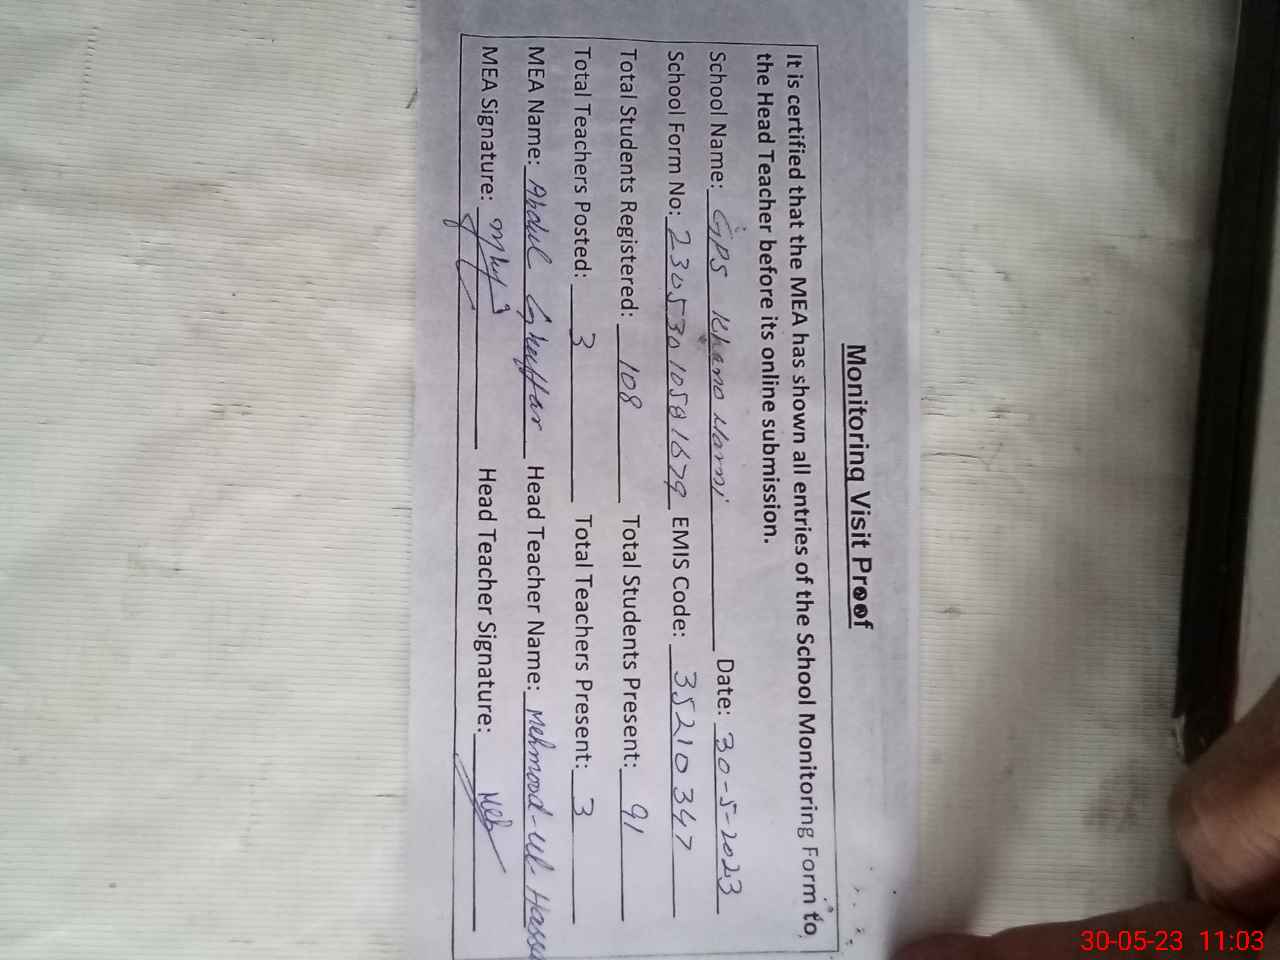 Monitoring Visit Proof
It is certified that the MEA has shown all entries of the School Monitoring Form to
the Head Teacher before its online submission.
School Name: GPS Khano Harni Date: 30-5-2023
School Form No: 23053010501679 EMIS Code: 35210347
Total Students Registered: 108 Total Students Present: 91
Total Teachers Posted: 3 Total Teachers Present: 3
MEA Name: Abdul Ghaffar Head Teacher Name: Mehmood-ul-Hassa
MEA Signature: Head Teacher Signature:
30-05-23 11:03